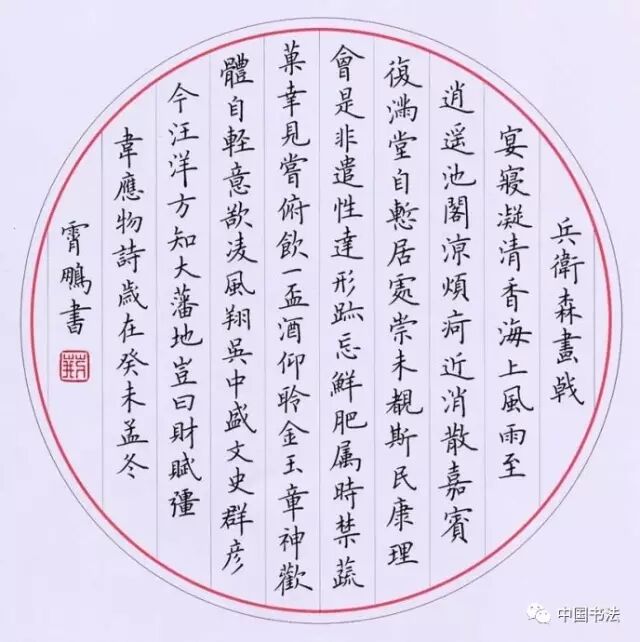 兵衛森畫戟
宴寢凝清香海上風雨至
逍遥池閣涼煩疴近消散嘉賓
復滿堂自慙居處崇未覩斯民康理
會是非遣性達形跡忘鮮肥属時禁蔬
菓幸見嘗俯飲一盃酒仰聆金玉章神歡
體自軽意欲凌風翔吳中盛文史群彦
今汪洋方知大藩地豈曰財賦彊
韋應物詩歲在癸未孟冬
霄鵬書
中国书法